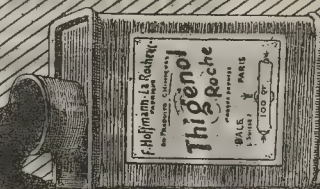 F. Hoffmann-La Roche & Cie
FABRIQUE
DE PRODUITS CHIMIQUES
Thigenol
Roche
MARQUE DEPOSEE
BALE
PARIS
(SUISSE)
100 Gr